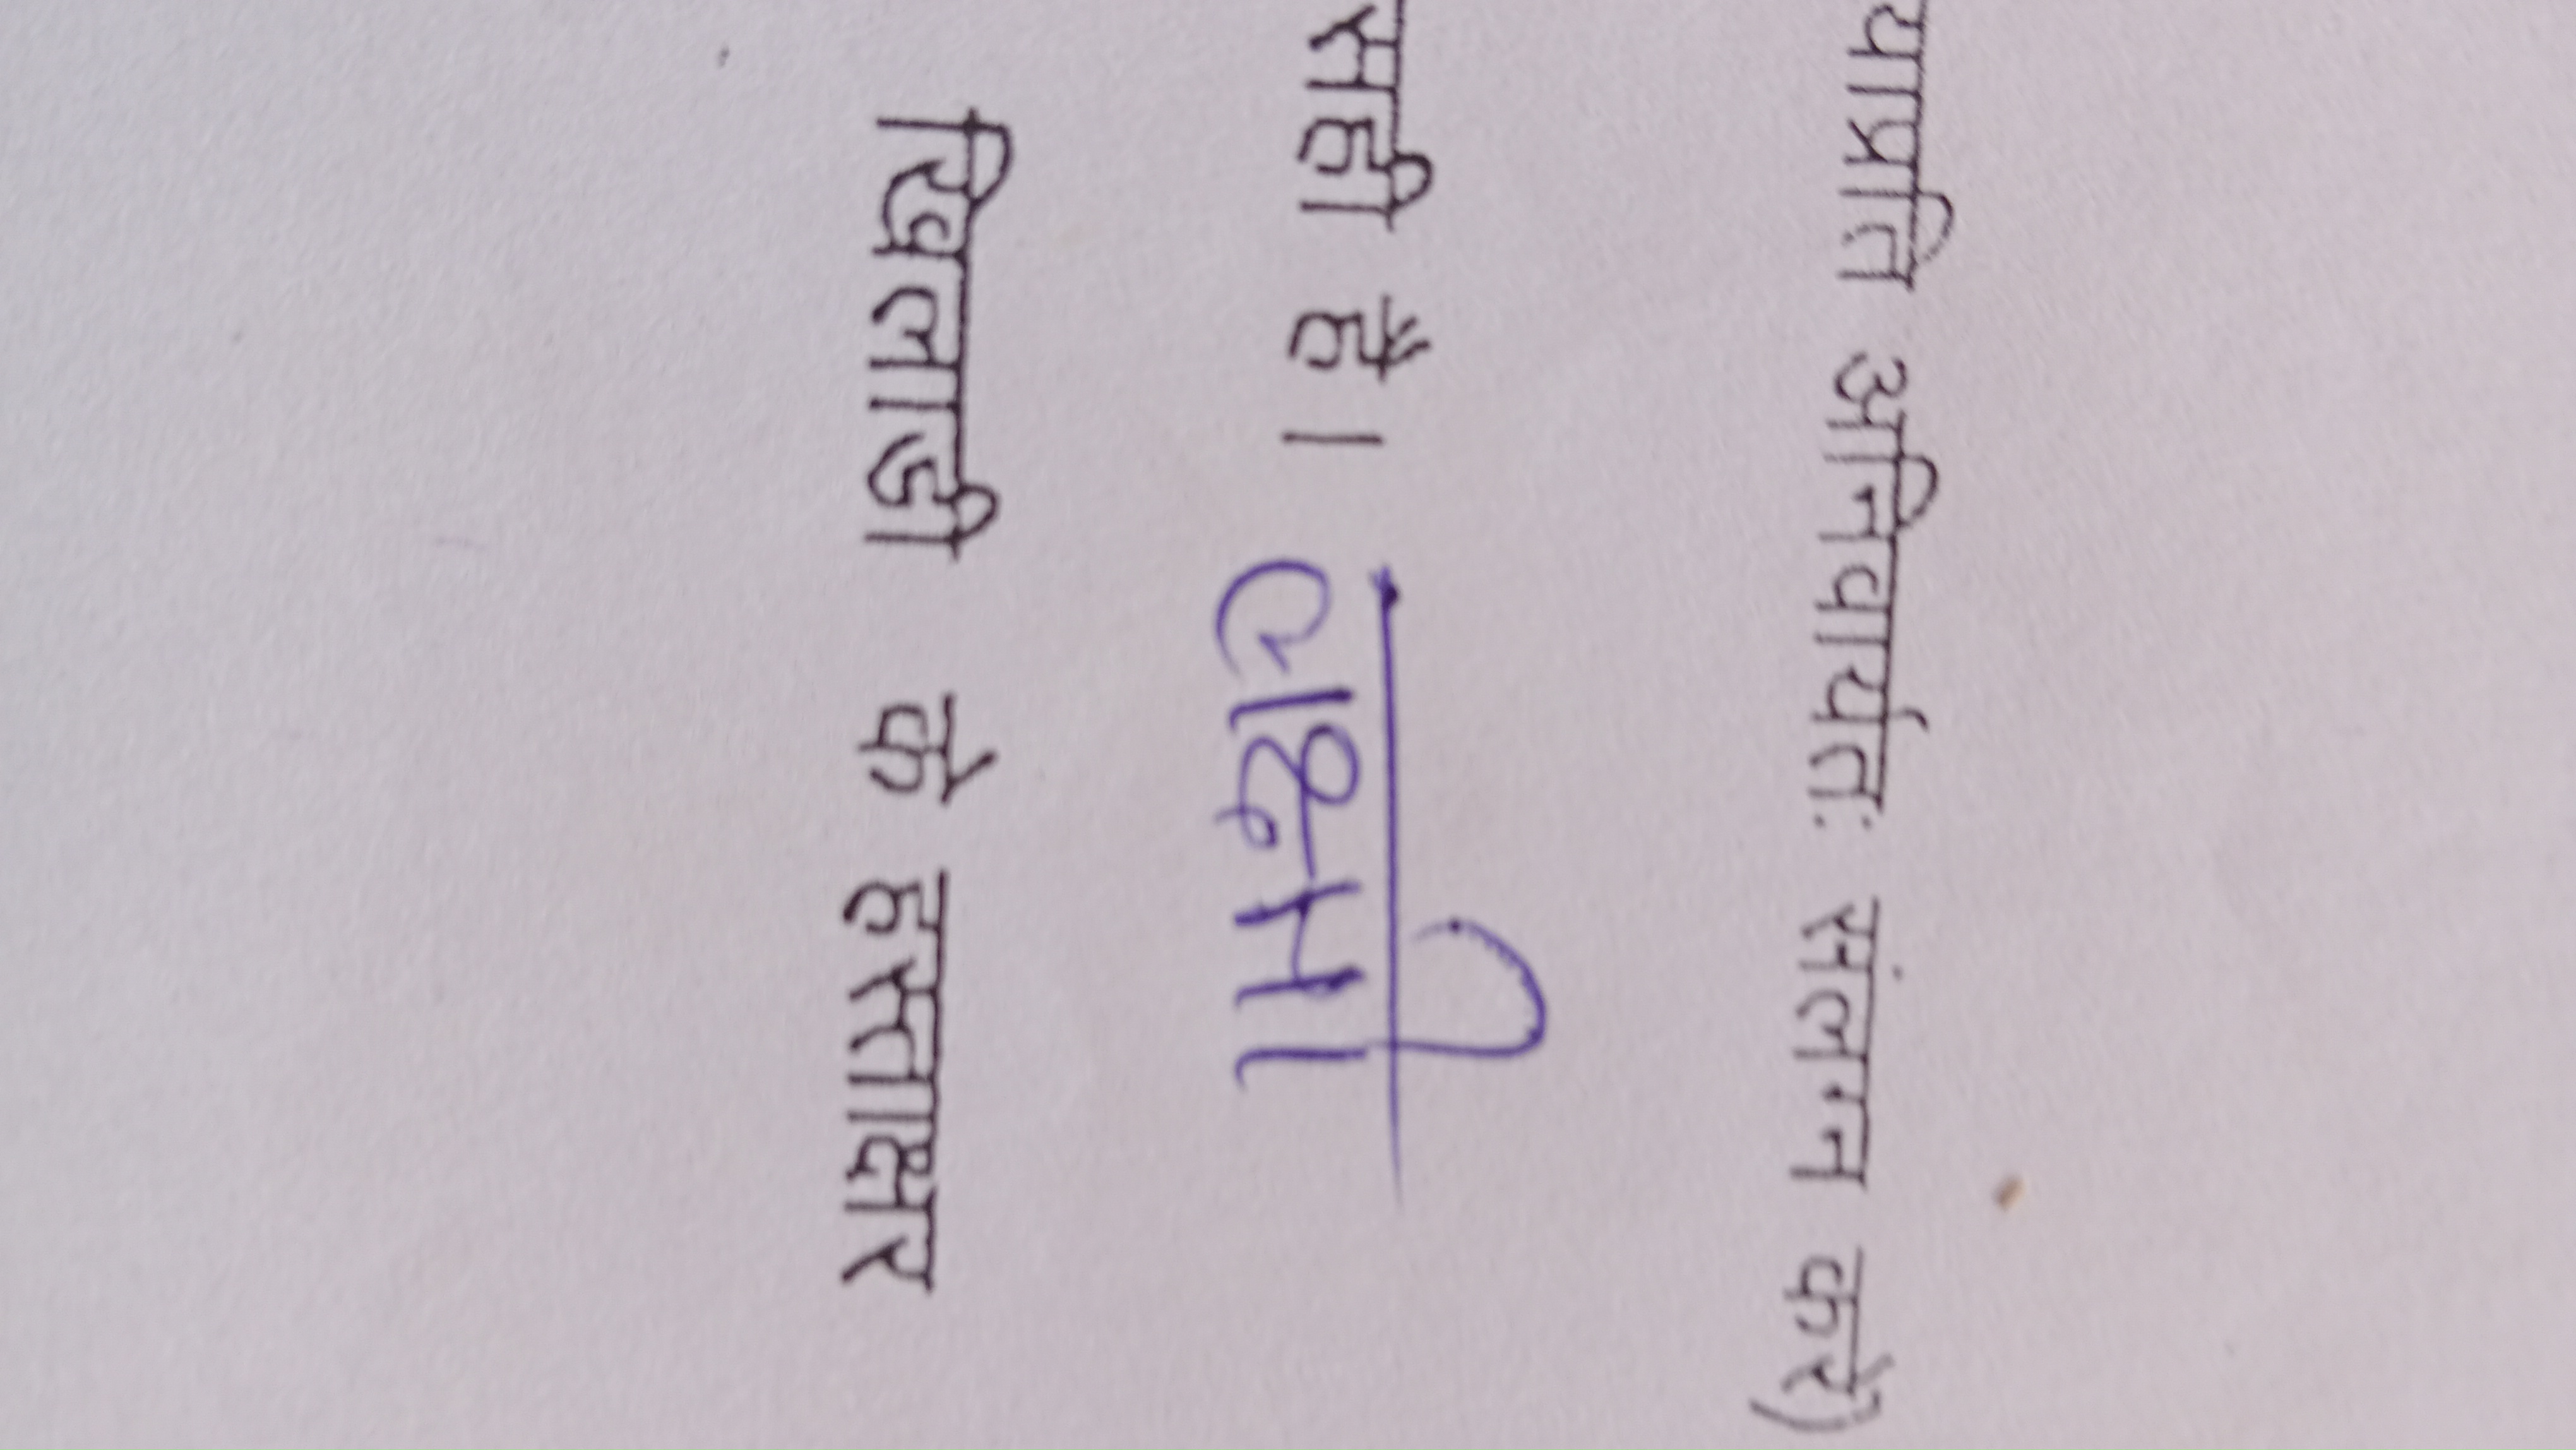 याप्रति अनिवार्यतः संलग्न करें)
सही है।
लक्ष्मी
खिलाडी के हस्ताक्षर